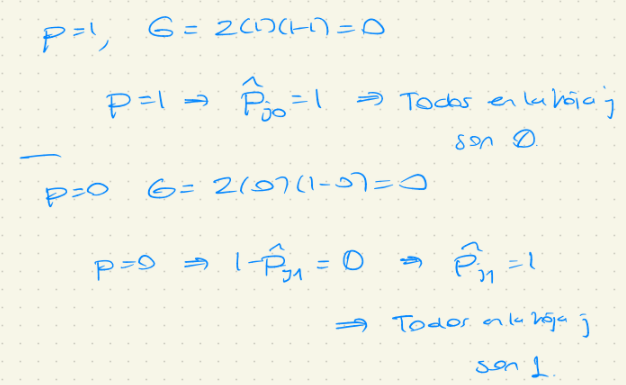 p=1, G= 2(1)(1-1)=0
p=1 ⇒ p̂j0=1 ⇒ Todos en la hoja j
son 0.
p=0 G= 2(0)(1-0)=0
p=0 ⇒ 1-p̂j1 = 0 ⇒ p̂j1 =1
⇒ Todos en la hoja j
son 1.